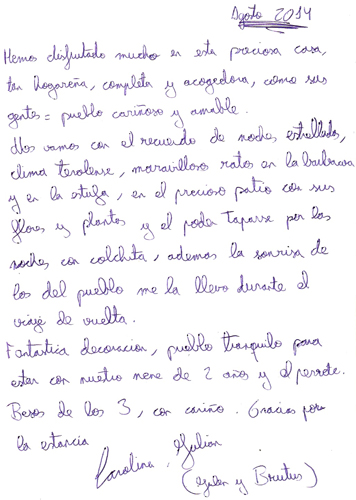 Agosto 2014
Hemos disfrutado mucho en esta preciosa casa,
tan hogareña, completa y acogedora, como sus
gentes = pueblo cariñoso y amable.
Nos vamos con el recuerdo de noches estrelladas,
clima terolense, maravillosos ratos en la barbacoa
y en la estufa, en el precioso patio con sus
flores y plantas y el poder taparse por las
noches con colchita, ademas la sonrisa de
los del pueblo me la llevo durante el
viaje de vuelta.
Fantastica decoracion, pueblo tranquilo para
estar con nuestro nene de 2 años y el perrete.
Besos de los 3, con cariño. Gracias por
la estancia
Carolina. Julian
(        y Brutus)